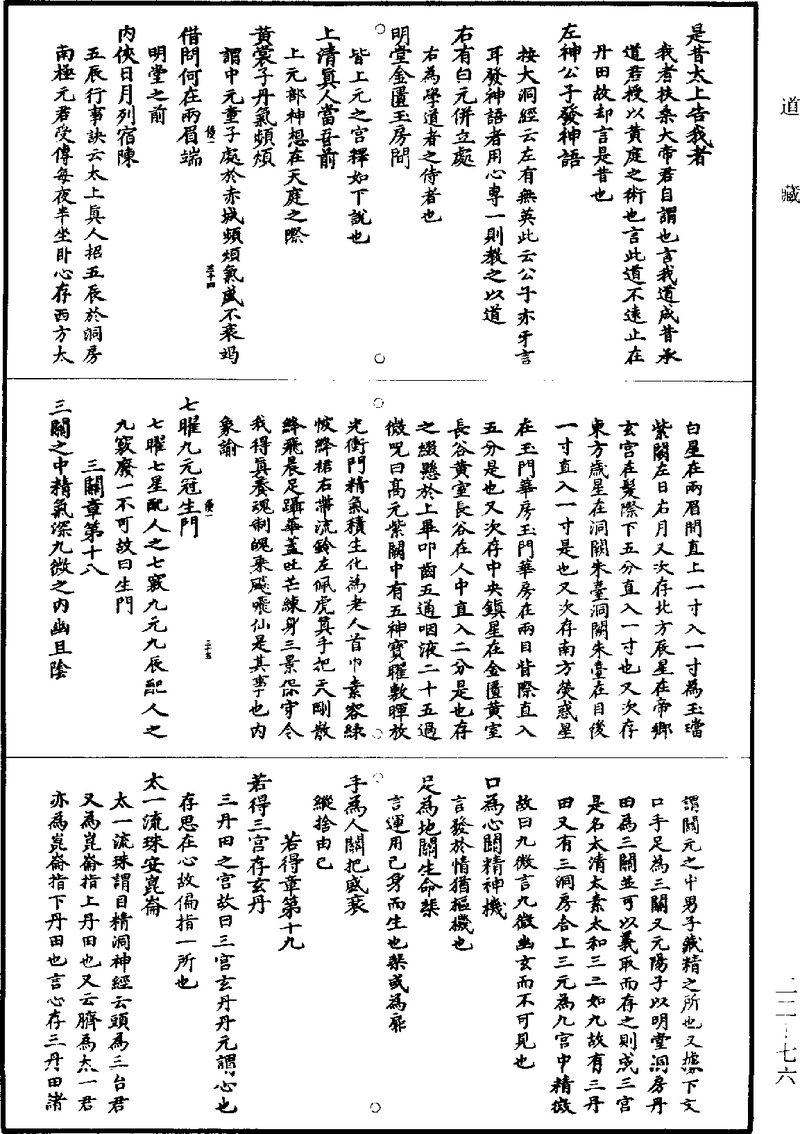 道藏
是昔太上告我者
我者扶桑大帝君自謂也言我道成昔承
道君授以黃庭之術也言此道不遠止在
丹田故却言是昔也
左神公子發神語
按大洞經云左有無英此云公子亦牙言
耳發神語者用心專一則教之以道
右有白元併立處
右為學道者之侍者也
明堂金匱玉房間
皆上元之宮釋如下說也
上清真人當吾前
上元部神想在天庭之際
黃裳子丹氣頻煩
謂中元童子處於赤城頻煩氣盛不衰竭
借問何在兩眉端
明堂之前
內俠日月列宿陳
五辰行事訣云太上真人招五辰於洞房
南極元君受傳每夜半坐卧心存西方太
白星在兩眉間直上一寸入一寸為玉璫
紫闕左日右月又次存北方辰星在帝鄉
玄宮在髮際下五分直入一寸也又次存
東方歲星在洞闕朱臺洞闕朱臺在目後
一寸直入一寸是也又次存南方熒惑星
在玉門華房玉門華房在兩目眥際直入
五分是也又次存中央鎮星在金匱黃室
長谷黃室長谷在人中直入二分是也存
之綴懸於上畢叩齒五通咽液二十五過
微呪曰高元紫闕中有五神寶曜敷暉放
光衝門精氣積生化為老人首巾素容綠
帔絳裙右帶流鈴左佩虎真手把天剛散
絳飛晨足躡華蓋吐芒練身三景保守令
我得真養魂制魄乘飈飛仙是其事也內
象諭
七曜九元冠生門
七曜七星配人之七竅九元九辰配人之
九竅廢一不可故曰生門
三關章第十八
三關之中精氣深九微之內幽且陰
謂關元之中男子藏精之所也又據下文
口手足為三關又元陽子以明堂洞房丹
田為三關並可以義取而存之則成三宮
是名太清太素太和三三如九故有三丹
田又有三洞房合上三元為九宮中精微
故曰九微言九微幽玄而不可見也
口為心關精神機
言發於情猶樞機也
足為地關生命棐
言運用己身而生也棐或為扉
手為人關把盛衰
縱捨由己
若得章第十九
若得三宮存玄丹
三丹田之宮故曰三宮玄丹丹元謂心也
存思在心故偏指一所也
太一流珠安崑崙
太一流珠謂目精洞神經云頭為三台君
又為崑崙指上丹田也又云臍為太一君
亦為崑崙指下丹田也言心存三丹田諸
二二―七六